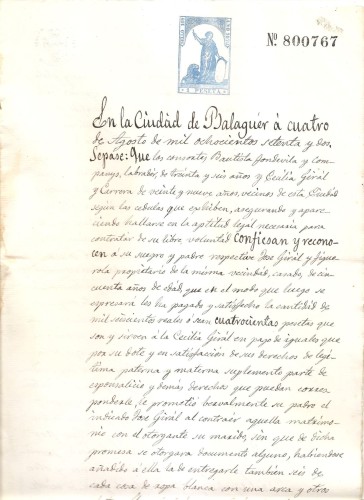 Nº 800767
1 PESETA
En la Ciudad de Balaguer á cuatro
de Agosto de mil ochocientos setenta y dos
Sepase: Que los consortes Bautista Jondevila y Com-
panys, labrador, de treinta y seis años y Cecilia Giral
y Carrera de veinte y nueve años, vecinos de esta Ciudad
según las cedulas que exhiben, asegurando y apare-
ciendo hallarse en la aptitud legal necesaria para
contratar de su libre voluntad Confiesan y recono-
cen á su suegro y padre respective José Giral y Figue-
rola propietario de la misma vecindad, casado, de cin-
cuenta años de edad, que en el modo que luego se
espresará les ha pagado y satisfecho la cantidad de
mil seiscientos reales ó sean cuatrocientas pesetas que
son y sirven á la Cecilia Giral en pago de iguales que
por su dote y en satisfaccion de sus derechos de legi-
tima paterna y materna suplemento parte de
esponsalicio y demás derechos que puedan corres-
ponderle, le prometió bervalmente su padre el
indicado José Giral al contraer aquella matrimo-
nio con el otorgante su marido, sin que de dicha
promesa se otorgara documento alguno, habiendose
añadido á ella la de entregarle tambien seis de
cada cosa de ropa blanca con una arca y otros